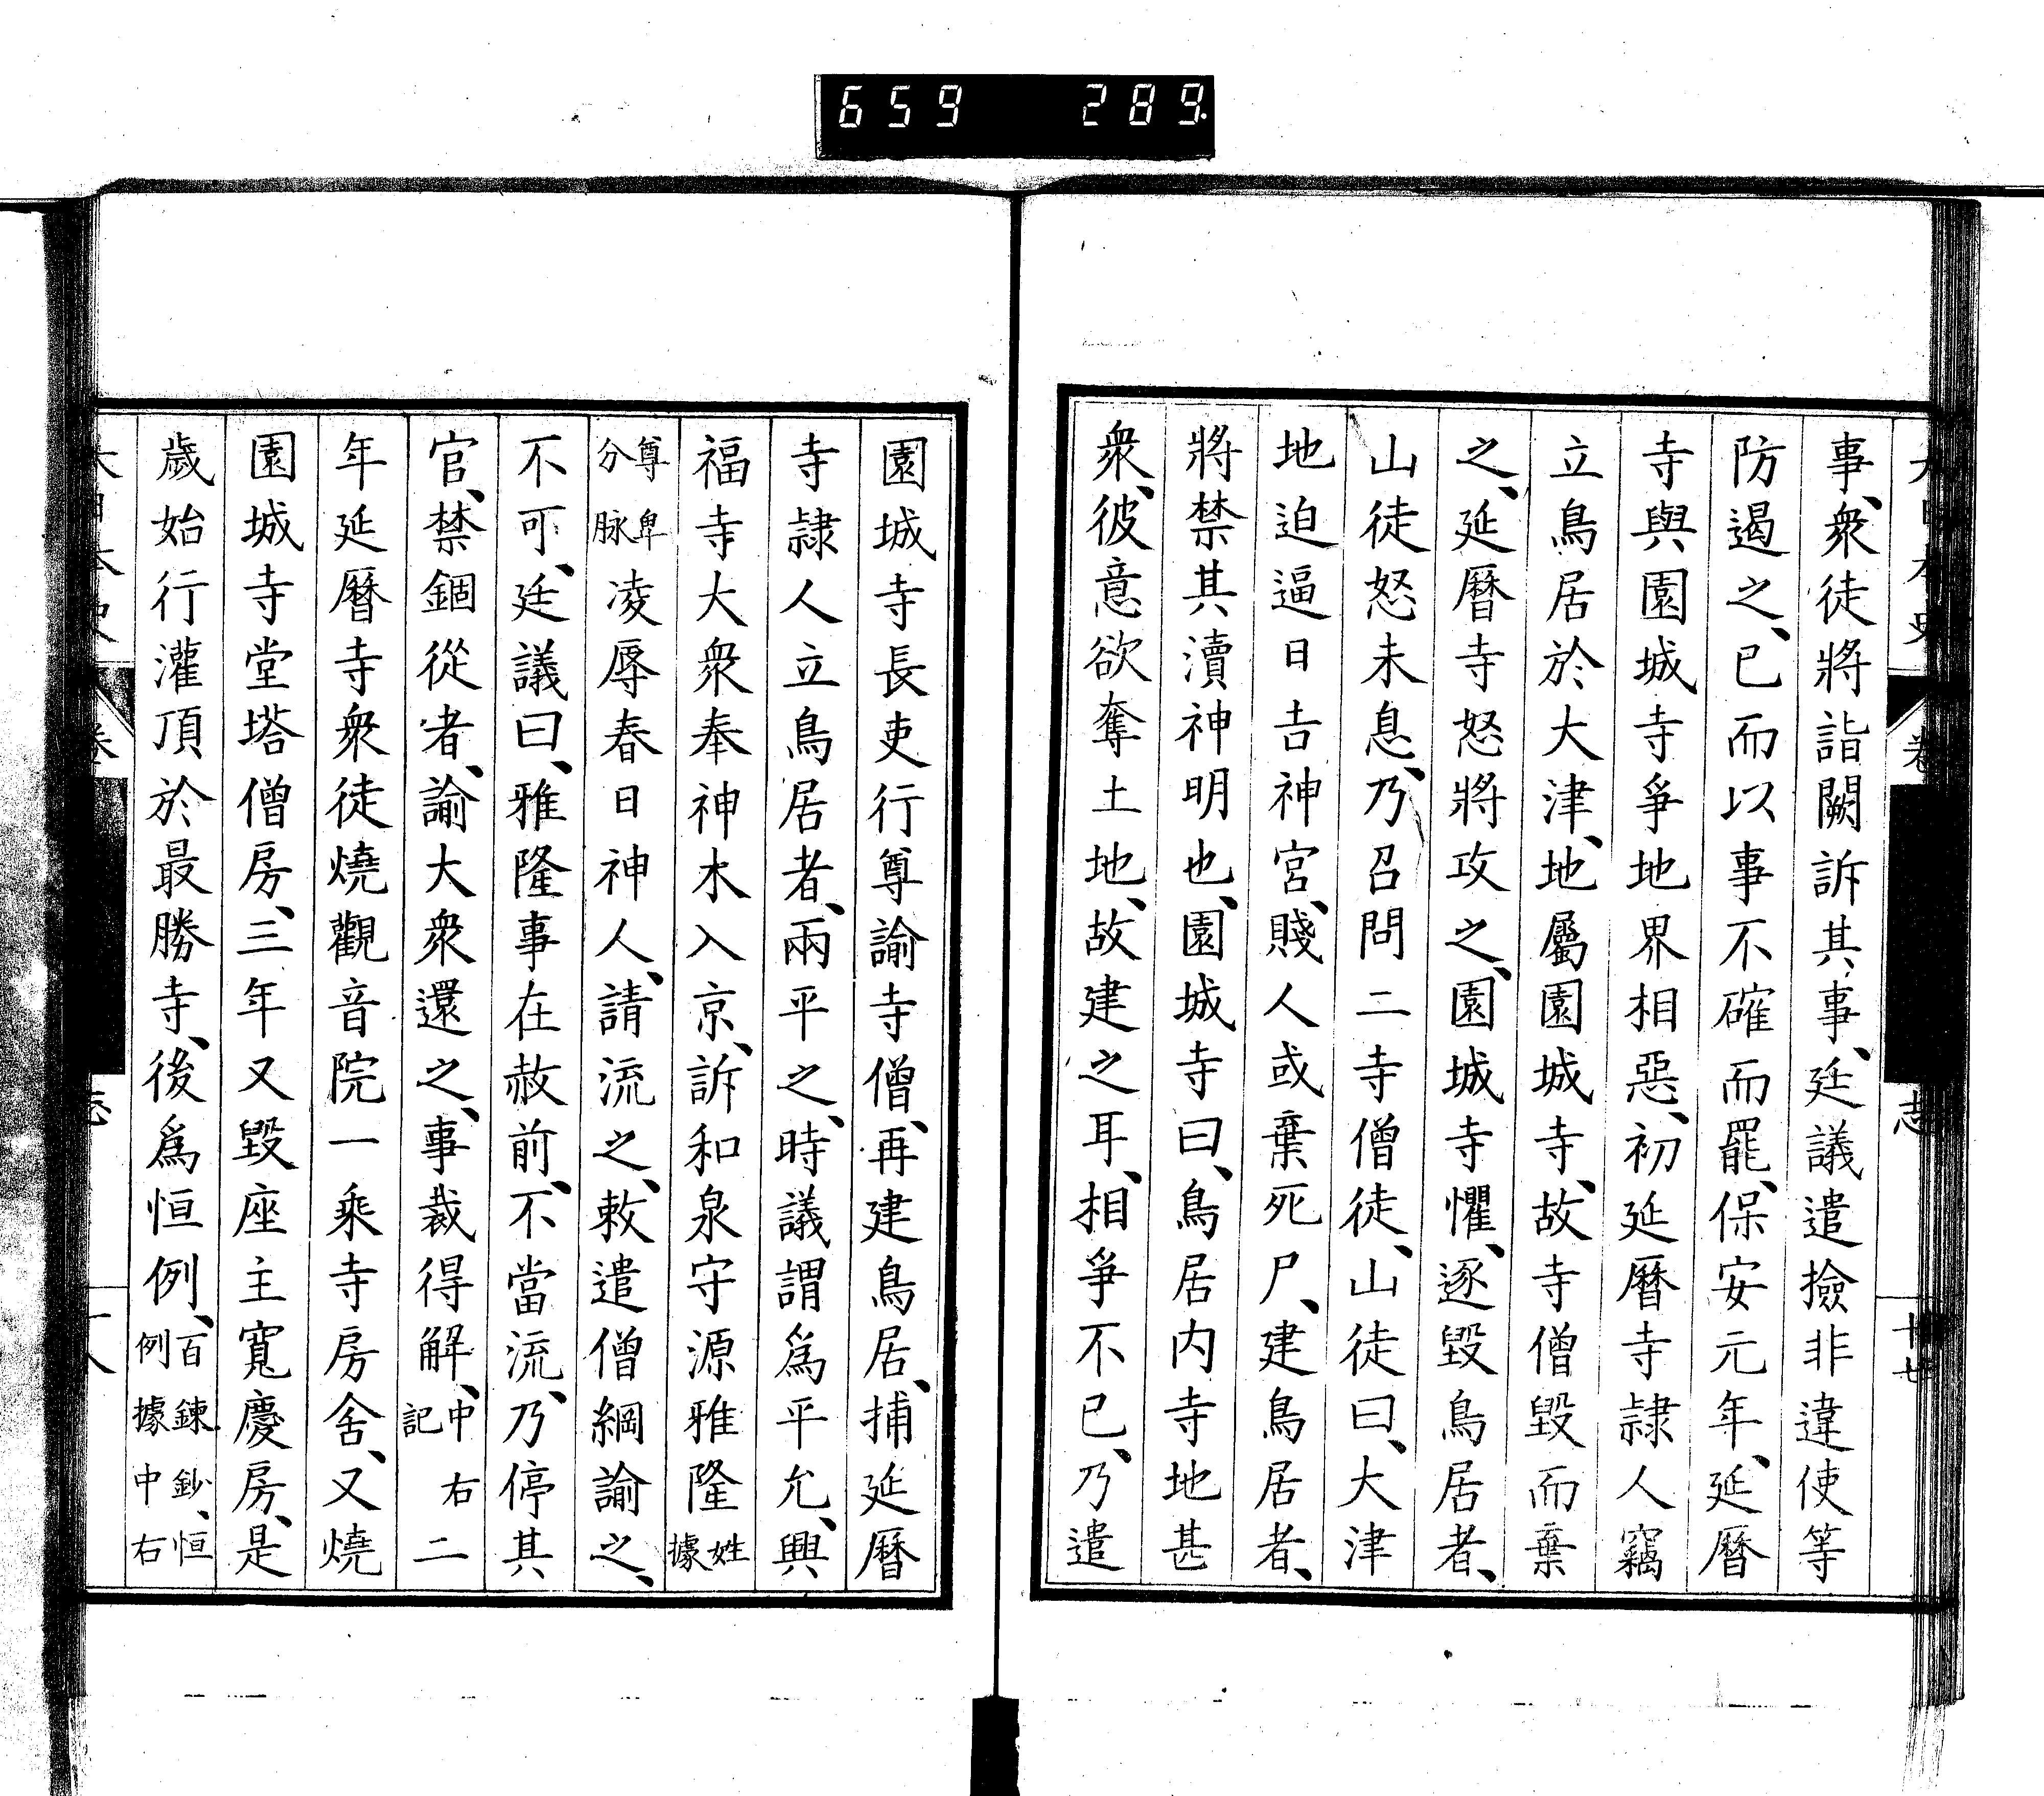 659 289
大日本史 卷 志 十七
事、衆徒將詣闕訴其事、廷議遣撿非違使等
防遏之、已而以事不確而罷、保安元年、延曆
寺與園城寺爭地界相惡、初延曆寺隷人竊
立鳥居於大津、地屬園城寺、故寺僧毀而棄
之、延曆寺怒將攻之、園城寺懼、逐毀鳥居者、
山徒怒未息、乃召問二寺僧徒、山徒曰、大津
地迫逼日吉神宮、賤人或棄死尸、建鳥居者、
將禁其瀆神明也、園城寺曰、鳥居内寺地甚
衆、彼意欲奪土地、故建之耳、相爭不已、乃遣
園城寺長吏行尊諭寺僧、再建鳥居、捕延曆
寺隷人立鳥居者、兩平之、時議謂爲平允、興
福寺大衆奉神木入京、訴和泉守源雅隆姓據
尊卑分脉凌辱春日神人、請流之、敕遣僧綱諭之、
不可、廷議曰、雅隆事在赦前、不當流、乃停其
官、禁錮從者、諭大衆還之、事裁得解、中右記二
年延曆寺衆徒燒觀音院一乘寺房舍、又燒
園城寺堂塔僧房、三年又毀座主寬慶房、是
歲始行灌頂於最勝寺、後爲恒例、百鍊鈔、恒例據中右
大日本史 卷 志 十八